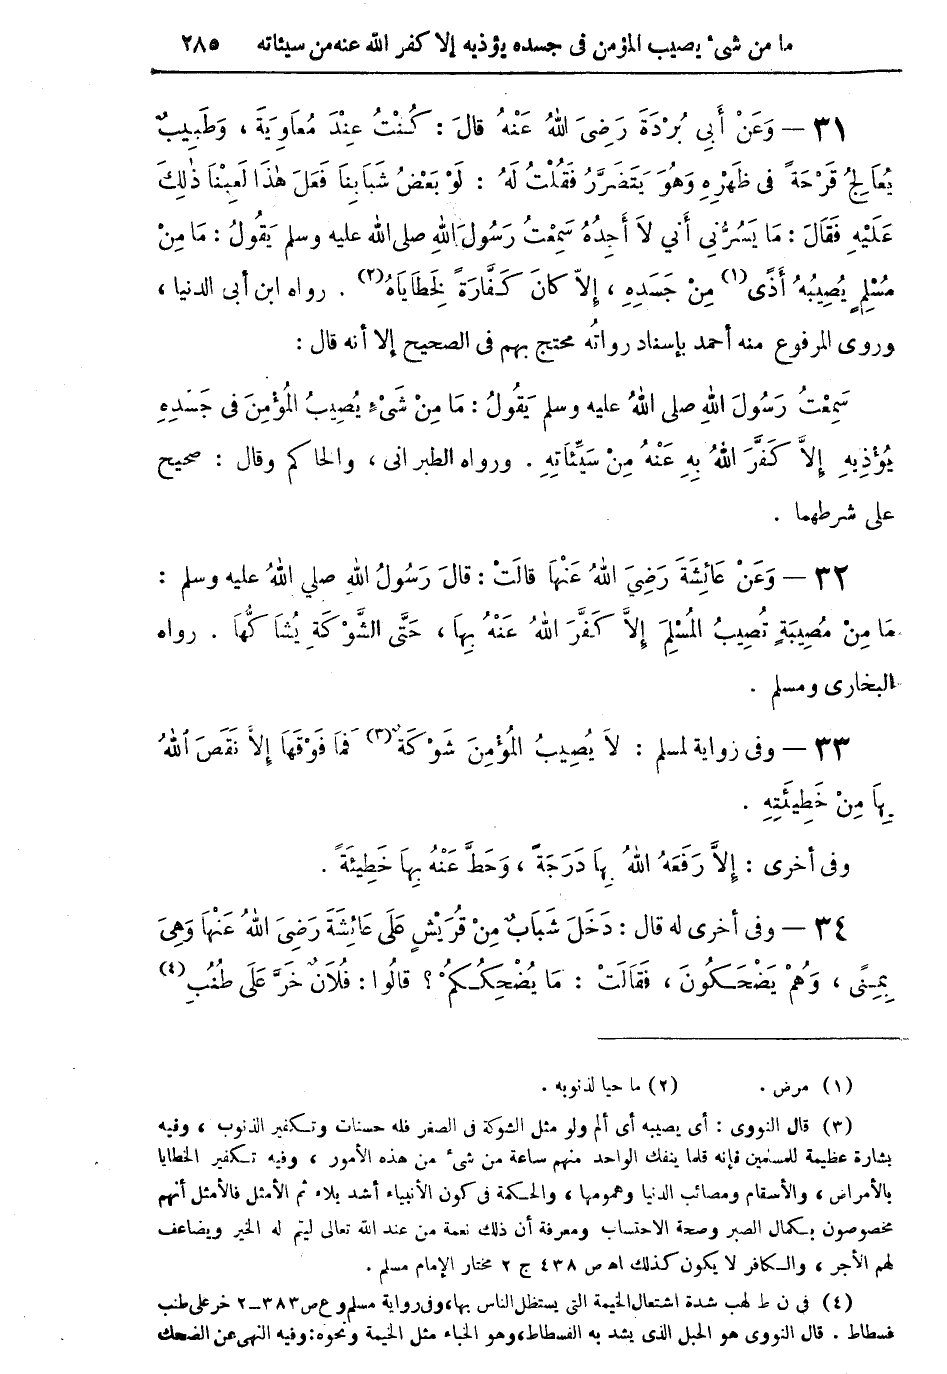 ما من شىء يصيب المؤمن فى جسده يؤذيه إلا كفر الله عنه من سيئاته ٢٨٥
٣١ — وَعَنْ أَبِي بُرْدَةَ رَضِيَ اللهُ عَنْهُ قالَ : كُنْتُ عِنْدَ مُعَاوِيَةَ ، وَطَبِيبٌ
يُعَالِجُ قَرْحَةً فى ظَهْرِهِ وَهُوَ يَتَضَرَّرُ فَقُلْتُ لَهُ : لَوْ بَعْضُ شَبَابِنَا فَعَلَ هٰذَا لَعِبْنَا ذٰلِكَ
عَلَيْهِ فَقَالَ : مَا يَسُرُّنِي أَنِّي لاَ أَجِدُهُ سَمِعْتُ رَسُولَ اللهِ صلى الله عليه وسلم يَقُولُ : مَا مِنْ
مُسْلِمٍ يُصِيبُهُ أَذًى (١) مِنْ جَسَدِهِ ، إِلاَّ كانَ كَفَّارَةً لِخَطَايَاهُ (٢) . رواه ابن أبى الدنيا ،
وروى المرفوع منه أحمد بإسناد رواتُه محتج بهم فى الصحيح إلا أنه قال :
سَمِعْتُ رَسُولَ اللهِ صلى اللهُ عليه وسلم يَقُولُ : مَا مِنْ شَىْءٍ يُصِيبُ المُؤْمِنَ فى جَسَدِهِ
يُؤْذِيهِ إِلاَّ كَفَّرَ اللهُ بِهِ عَنْهُ مِنْ سَيِّئَاتِهِ . ورواه الطبرانى ، والحاكم وقال : صحيح
على شرطهما .
٣٢ — وَعَنْ عَائِشَةَ رَضِيَ اللهُ عَنْهَا قالَتْ : قالَ رَسُولُ اللهِ صلى اللهُ عليه وسلم :
مَا مِنْ مُصِيبَةٍ تُصِيبُ المُسْلِمَ إِلاَّ كَفَّرَ اللهُ عَنْهُ بِهَا ، حَتَّى الشَّوْكَةِ يُشَاكُهَا . رواه
البخارى ومسلم .
٣٣ — وفى رواية لمسلم : لاَ يُصِيبُ المُؤْمِنَ شَوْكَةٌ (٣) فَمَا فَوْقَهَا إِلاَّ نَقَصَ اللهُ
بِهَا مِنْ خَطِيئَتِهِ .
وفى أخرى : إِلاَّ رَفَعَهُ اللهُ بِهَا دَرَجَةً ، وَحَطَّ عَنْهُ بِهَا خَطِيئَةً .
٣٤ — وفى أخرى له قال : دَخَلَ شَبَابٌ مِنْ قُرَيْشٍ عَلَى عَائِشَةَ رَضِيَ اللهُ عَنْهَا وَهِيَ
بِمِنًى ، وَهُمْ يَضْحَكُونَ ، فَقَالَتْ : مَا يُضْحِكُكُمْ ؟ قالُوا : فُلاَنٌ خَرَّ عَلَى طُنُبِ (٤)
(١) مرض . (٢) ماحيا لذنوبه .
(٣) قال النووى : أى يصيبه أى ألم ولو مثل الشوكة فى الصغر فله حسنات وتكفير الذنوب ، وفيه
بشارة عظيمة للمسلمين فإنه قلما ينفك الواحد منهم ساعة من شىء من هذه الأمور ، وفيه تكفير الخطايا
بالأمراض ، والأسقام ومصائب الدنيا وهمومها ، والحكمة فى كون الأنبياء أشد بلاء ثم الأمثل فالأمثل أنهم
مخصوصون بكمال الصبر وصحة الاحتساب ومعرفة أن ذلك نعمة من عند الله تعالى ليتم له الخير ويضاعف
لهم الأجر ، والكافر لا يكون كذلك اه ص ٤٣٨ ج ٢ مختار الإمام مسلم .
(٤) فى ن ط لهب شدة اشتعال الخيمة التى يستظل الناس بها، وفى رواية مسلم و ع ص ٣٨٣ـ٢ خر على طنب
فسطاط . قال النووى هو الحبل الذى يشد به الفسطاط، وهو الخباء مثل الخيمة ونحوه: وفيه النهى عن الضحك